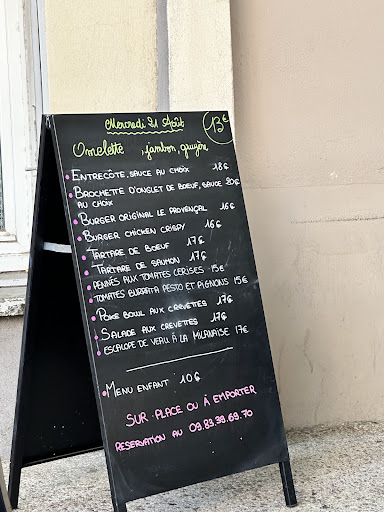 Mercredi 21 Août
13€
Omelette , jambon, gruyère
• ENTRECÔTE, SAUCE AU CHOIX 18€
• BROCHETTE D'ONGLET DE BOEUF, SAUCE 20€
AU CHOIX
• BURGER ORIGINAL LE PROVENÇAL 16€
• BURGER CHICKEN CRISPY 16€
• TARTARE DE BOEUF 17€
• TARTARE DE SAUMON 17€
• PENNES AUX TOMATES CERISES 15€
• TOMATES BURRATA PESTO ET PIGNONS 15€
• POKE BOWL AUX CREVETTES 17€
• SALADE AUX CREVETTES 17€
• ESCALOPE DE VEAU À LA MILANAISE 17€
• MENU ENFANT 10€
SUR PLACE OU À EMPORTER
RESERVATION AU 09.83.39.69.70